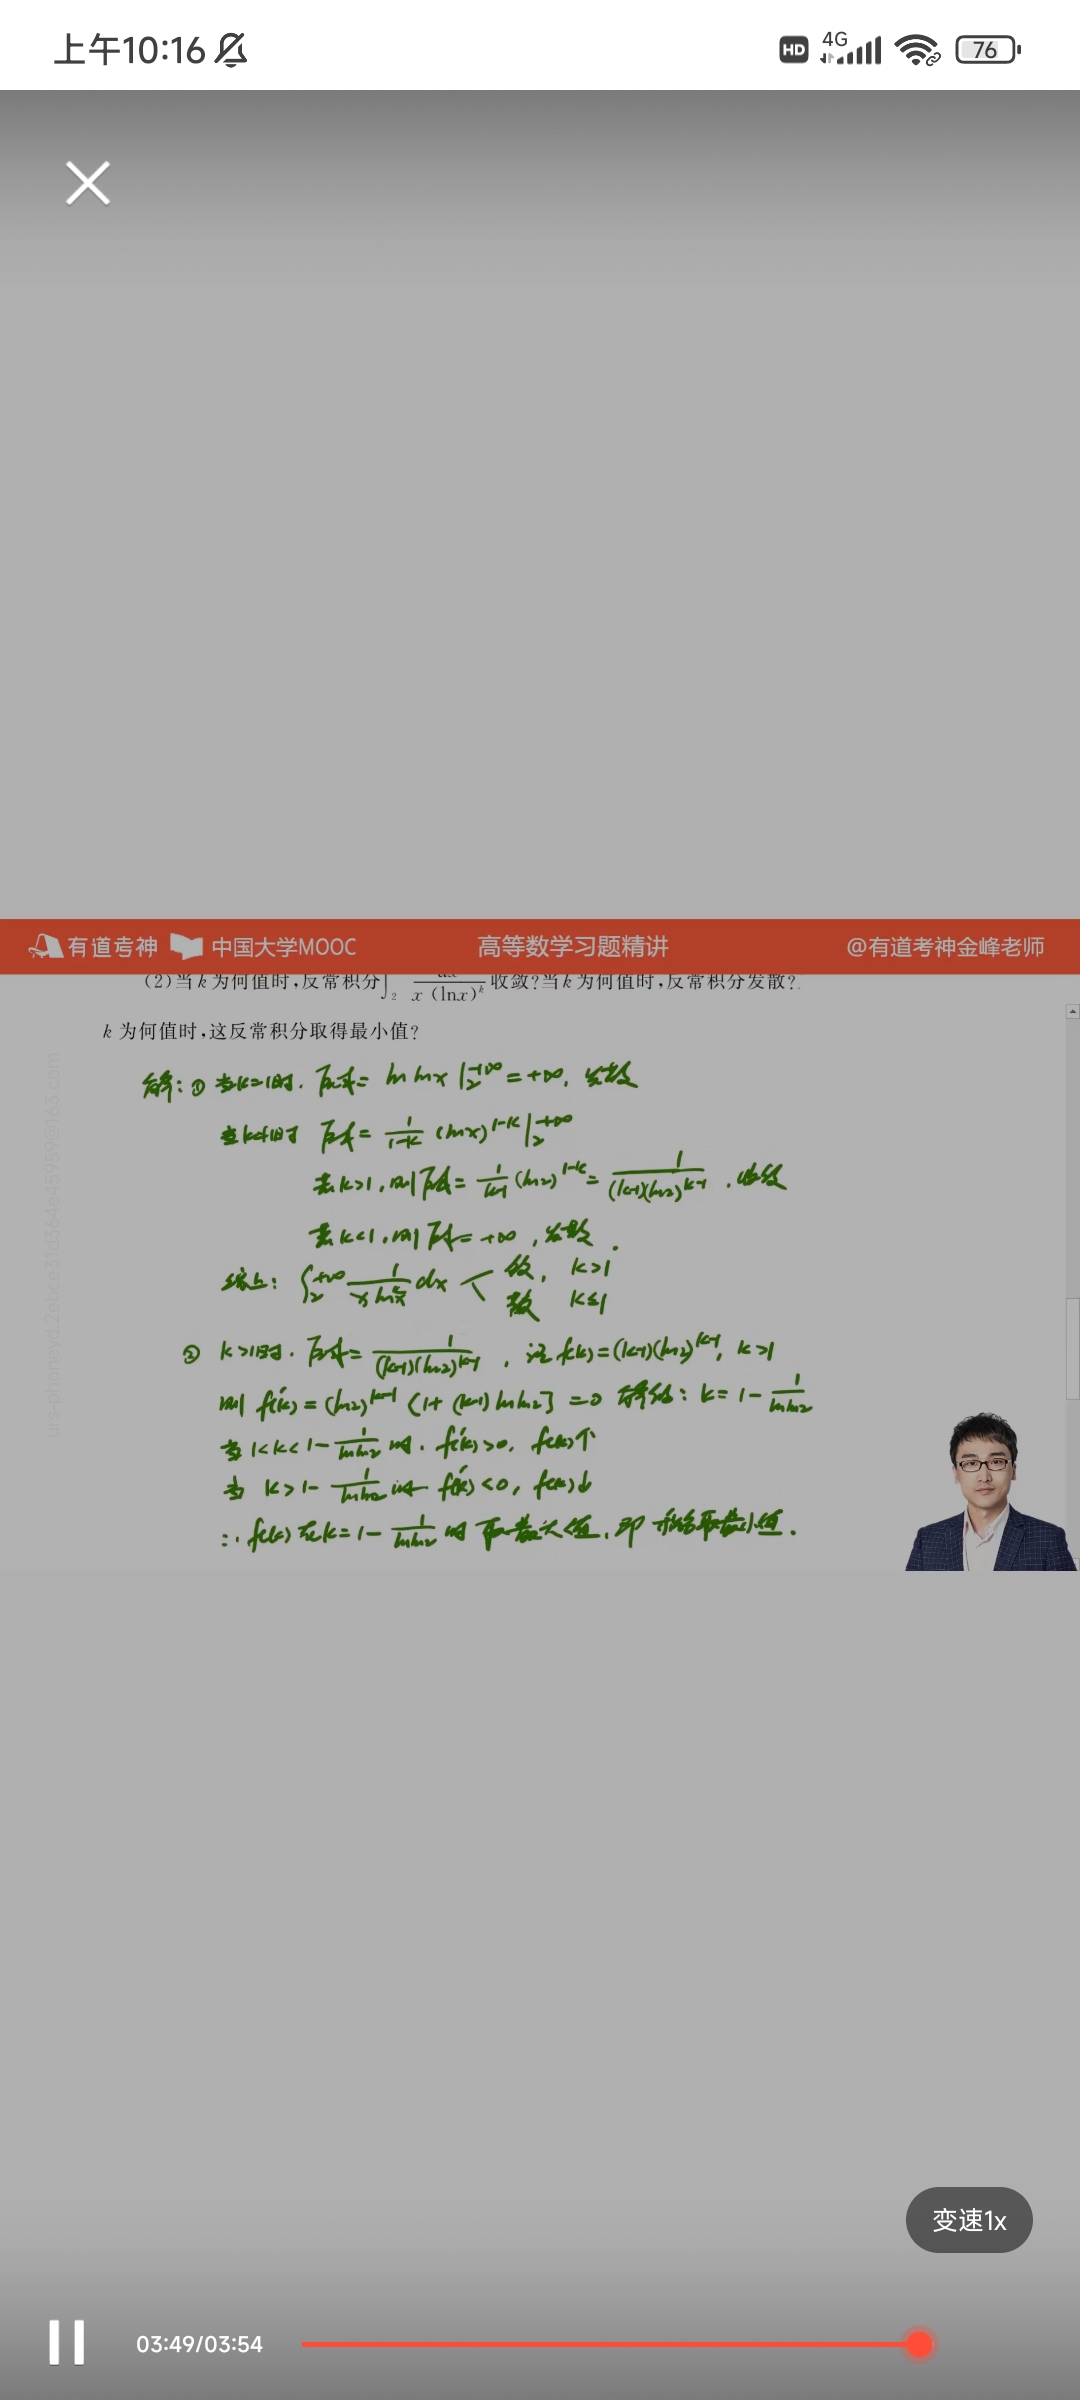 上午10:16 HD 4G 76
有道考神 中国大学MOOC 高等数学习题精讲 @有道考神金峰老师
(2)当k为何值时,反常积分∫₂ dx/(x (lnx)^k) 收敛?当k为何值时,反常积分发散?
k为何值时,这反常积分取得最小值?
解:① 当k=1时. 原式= ln lnx |₂^{+∞} = +∞, 发散
当k≠1时 原式= 1/(1-k) (lnx)^{1-k} |₂^{+∞}
若k>1,则原式= 1/(k-1) (ln2)^{1-k} = 1/((k-1)(ln2)^{k-1}) ,收敛
若k<1,则原式= +∞ ,发散.
综上: ∫₂^{+∞} 1/(x ln^k x) dx < 敛, k>1
散 k≤1
② k>1时. 原式= 1/((k-1)(ln2)^{k-1}) , 记f(k)=(k-1)(ln2)^{k-1}, k>1
则 f'(k) = (ln2)^{k-1} [1+(k-1)lnln2] =0 解得: k=1-1/lnln2
当 1<k<1-1/lnln2 时. f'(k)>0, f(k)↑
当 k>1-1/lnln2 时 f'(k)<0, f(k)↓
∴ f(k)在k=1-1/lnln2 时 取最大值,即 积分取最小值.
urs-phoneyd.2ebce31d364e45959@163.com
变速1x
03:49/03:54